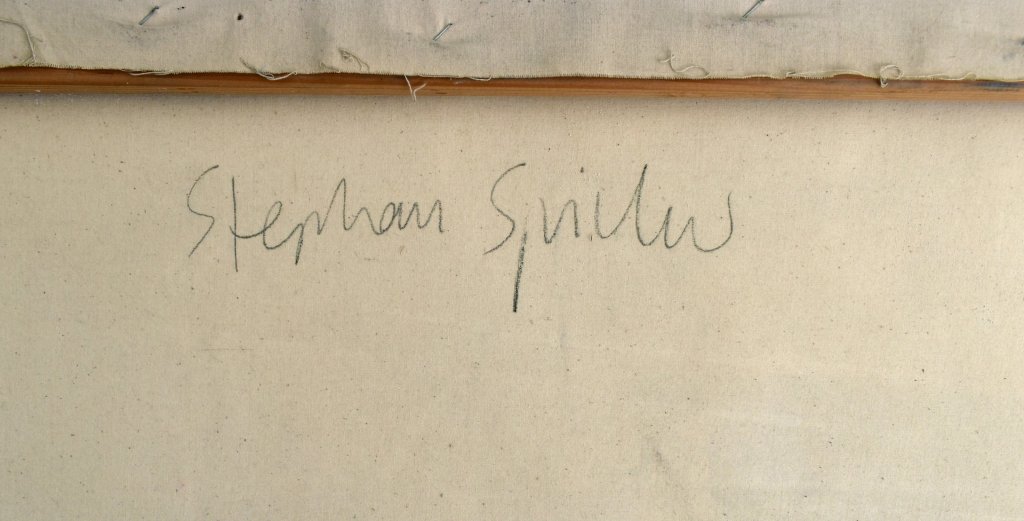 Stephan Spicher